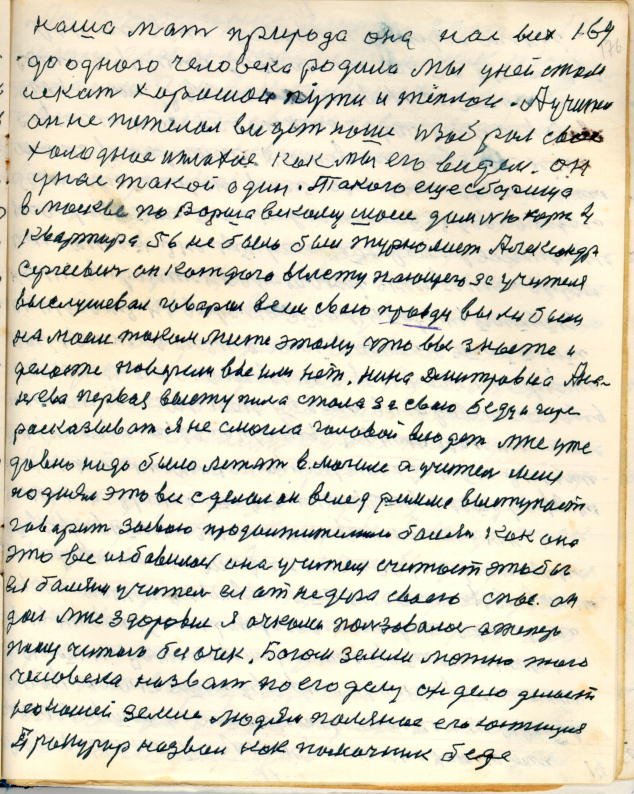 наша мат природа она нас вех 164
до одного человека родила мы уней стали
искат хорошаи пути и тёплаи. А учител
он не пожелал видет наше избрал свае
холоднае и плахае как мы его видем. он
унас такой один. Такого еще сборища
в москве по Варшавскаму шасе дом
квартира 56 не было был журналист Александр
Сергеевич он каждого выступающего за учителя
выслушевал гаварил всем свою правду вы ли были
на маем таком мите этому что вы знаете и
делаете поверили вы или нет. нина Дмитровна Ана-
ньева первая выступила стала за свою беду и горе
расказыват я не смогла головой владет мне уже
давно надо было лежат в могиле а учител меня
поднял это все сделал он вслед римма выступает
гаварит засваю продолжителною болезн как она
это все избавилас она учителя считает этобы
ея балезн учител ея от недуга своего спас. он
дал мне здоровия я очками ползовалас а теперь
пишу читаю без очек. Богом земли можно этого
человека назват по его делу он дело делает
на нашей земле людям полязное его юстиция
Прокурор назвал как помочник беде